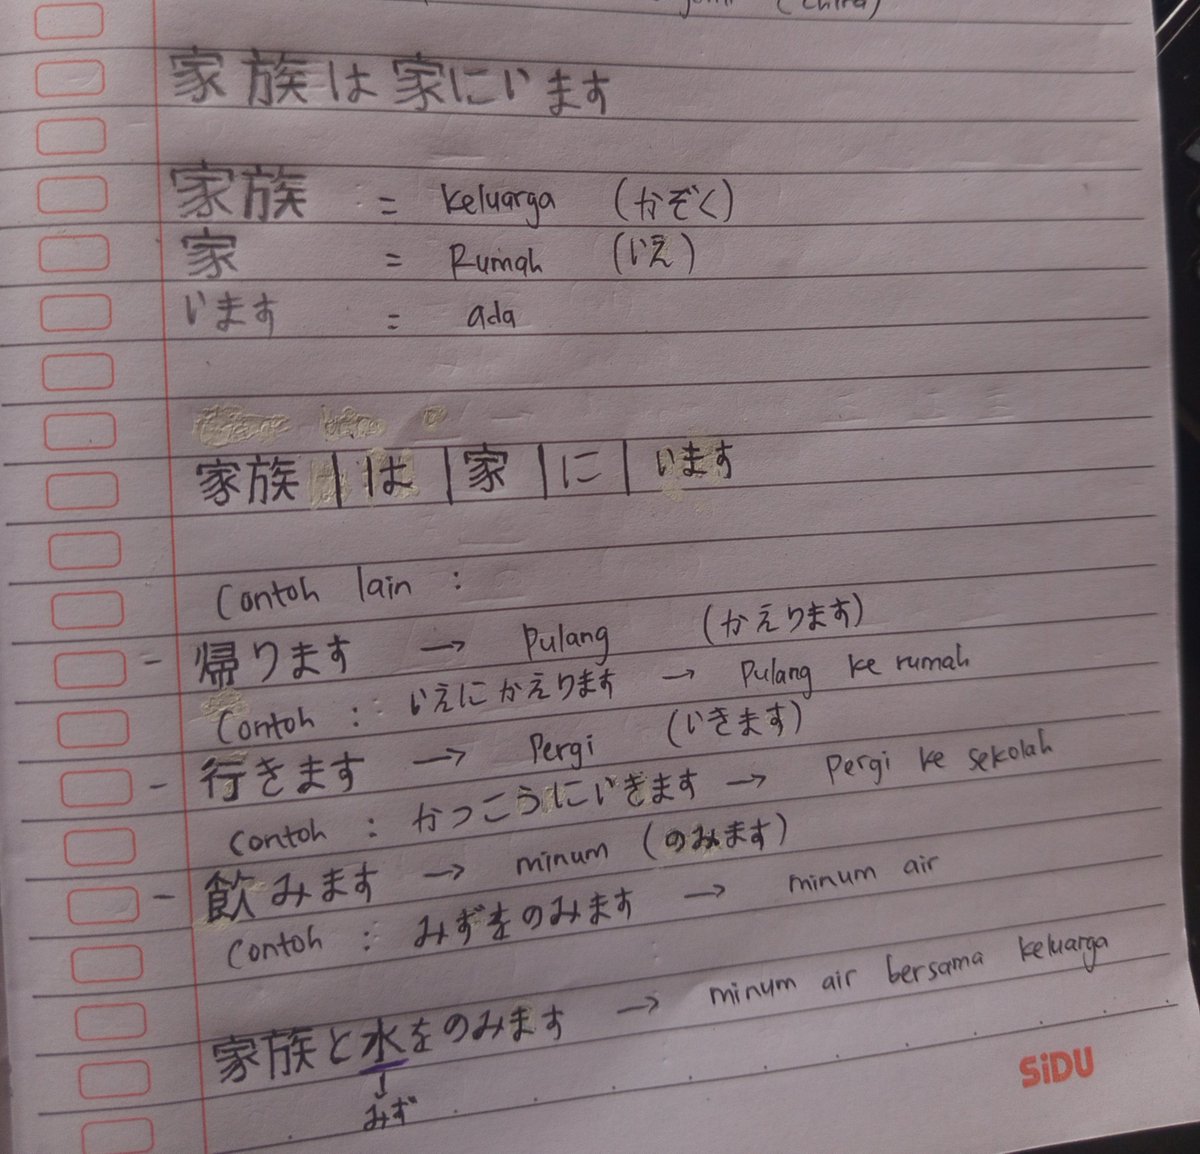 (China)
家族は家にいます
家族 = keluarga (かぞく)
家 = Rumah (いえ)
います = ada
家族 | は | 家 | に | います
Contoh lain :
- 帰ります → Pulang (かえります)
Contoh : いえにかえります → Pulang ke rumah
- 行きます → Pergi (いきます)
Contoh : かっこうにいきます → Pergi ke sekolah
- 飲みます → minum (のみます)
Contoh : みずをのみます → minum air
家族と水をのみます → minum air bersama keluarga
↓
みず
SiDU